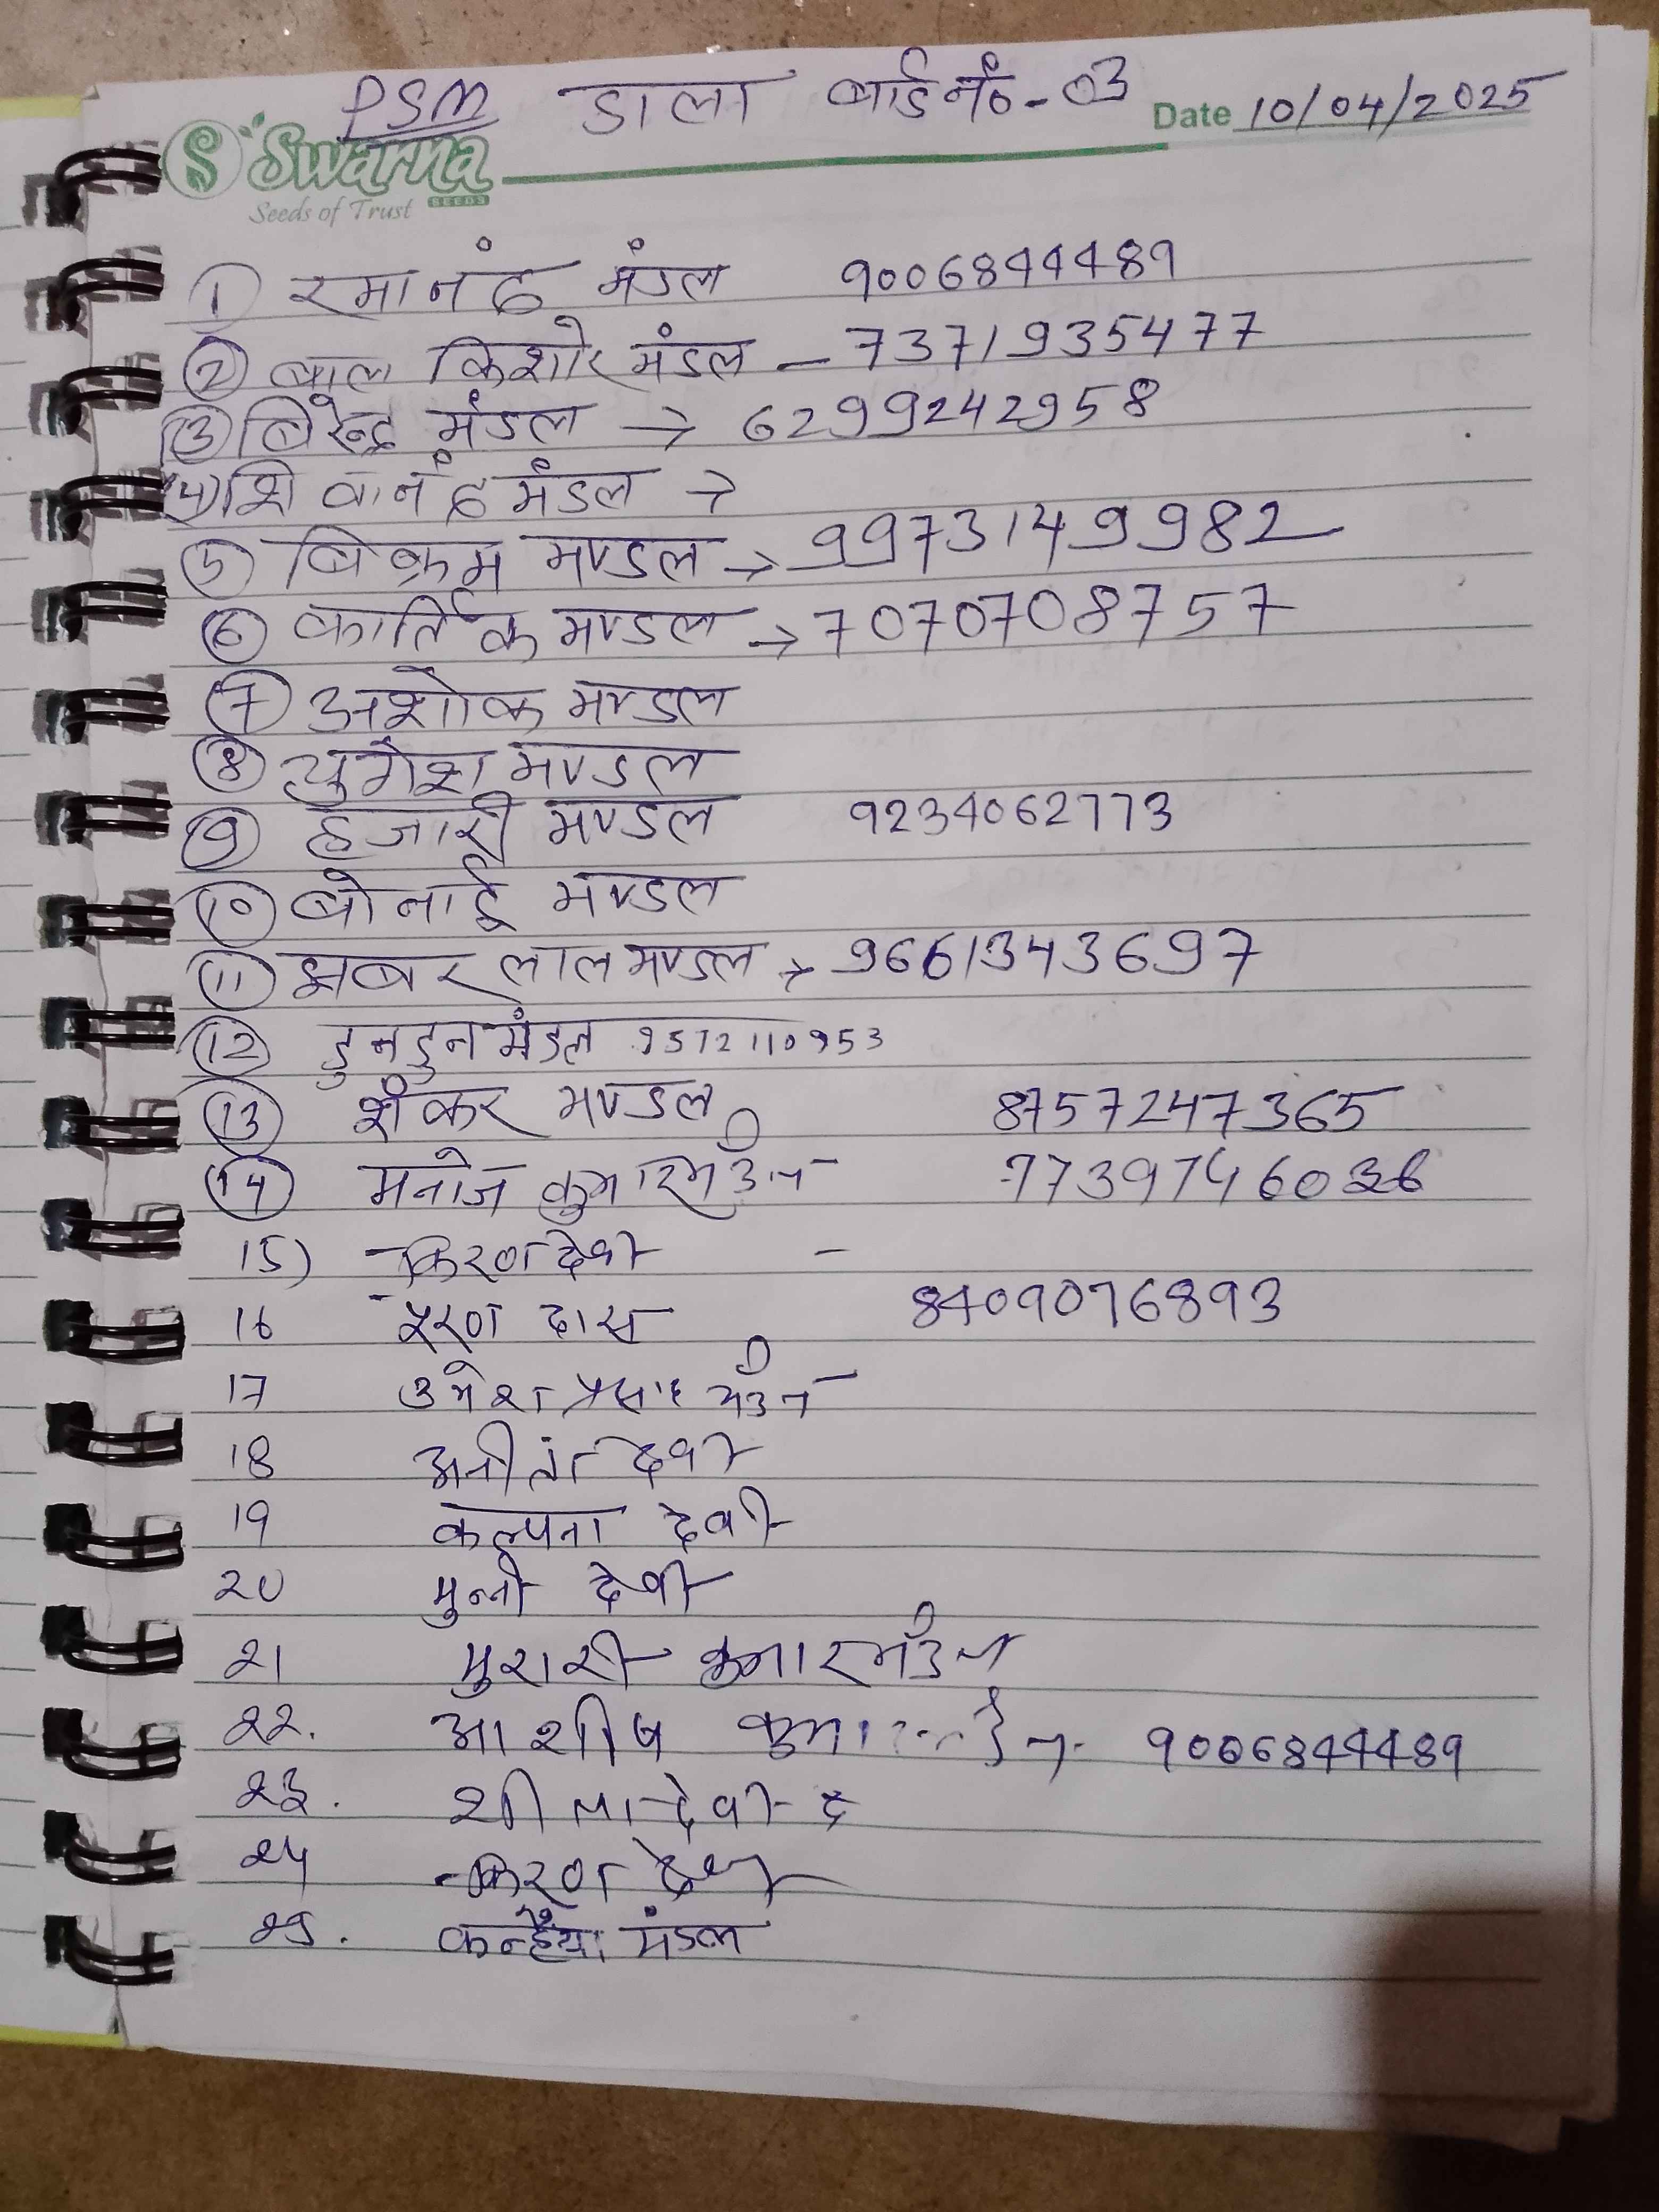 PSM डाला वार्ड नं०-03
Date 10/04/2025
Swarna
SEEDS
Seeds of Trust
① रमानंद मंडल 9006844489
② बाल किशोर मंडल - 7371935477
③ बिरेन्द्र मंडल → 6299242958
4) शिवानंद मंडल →
⑤ बिक्रम मण्डल → 9973149982
⑥ कार्तिक मण्डल → 7070708757
⑦ अशोक मण्डल
⑧ युगेश मण्डल
⑨ हजारी मण्डल 9234062773
⑩ बोनाई मण्डल
⑪ झबर लाल मण्डल → 9661343697
⑫ डुनडुन मंडल 9572110953
⑬ शंकर मण्डल 8757247365
⑭ मनोज कुमार मंडल
15) किरण देवी -
16 पूरण दास 8409076893
17 उमेश प्रसाद मंडल
18 अनीता देवी
19 कल्पना देवी
20 मुन्नी देवी
२१ मुरारी कुमार मंडल
२२. आशीष कुमार 9006844489
२३. शीला देवी द
२४ किरण देवी
२५. कन्हैया मंडल